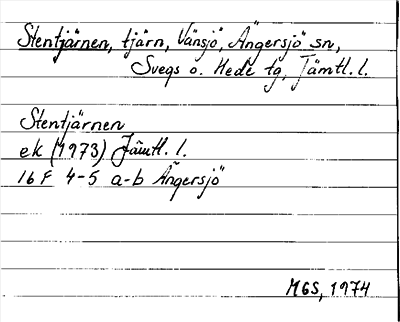 Stentjärnen, tjärn, Vänsjö, Ängersjö sn,
Svegs o. Hede tg, Jämtl. l.
Stentjärnen
ek (1973) Jämtl. l.
16 F 4-5 a-b Ängersjö
MGS, 1974